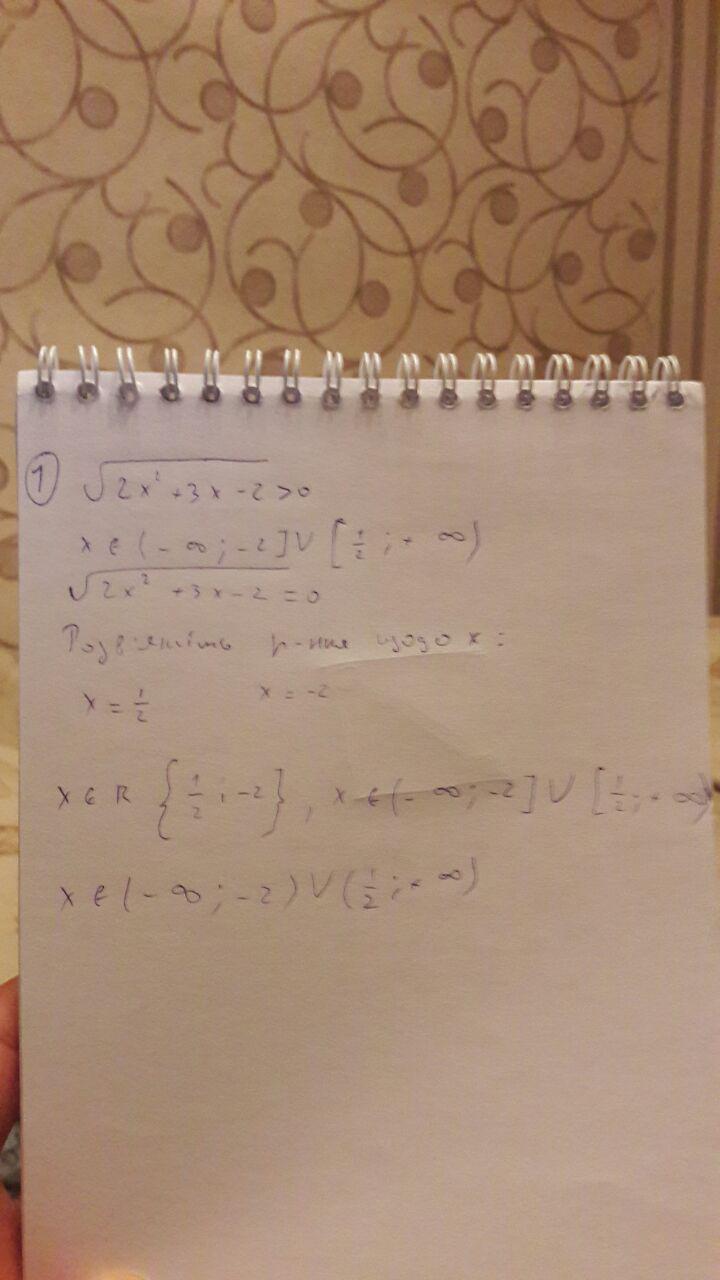 1 √2x² + 3x - 2 > 0
x ∈ (- ∞ ; -2] ∪ [1/2 ; + ∞)
√2x² + 3x - 2 = 0
Розв'яжіть р-ння щодо x :
x = 1/2 x = -2
x ∈ R {1/2 ; -2} , x ∈ (- ∞ ; -2] ∪ [1/2 ; + ∞)
x ∈ (- ∞ ; -2) ∪ (1/2 ; + ∞)